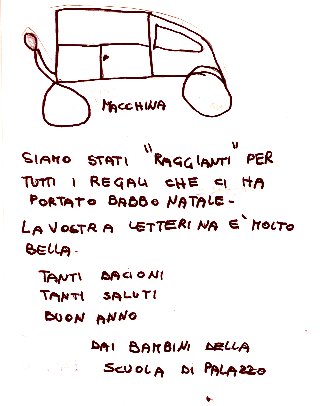 MACCHINA
SIAMO STATI "RAGGIANTI" PER
TUTTI I REGALI CHE CI HA
PORTATO BABBO NATALE-
LA VOSTRA LETTERINA E' MOLTO
BELLA-
TANTI BACIONI
TANTI SALUTI
BUON ANNO
DAI BAMBINI DELLA
SCUOLA DI PALAZZO